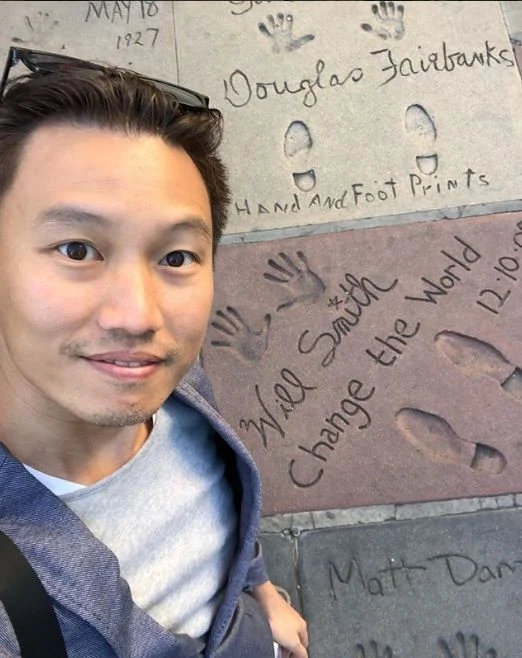 MAY 18
1927
Douglas Fairbanks
HAND AND FOOT PRINTS
Will Smith
Change the World
12.10.
Matt Dam